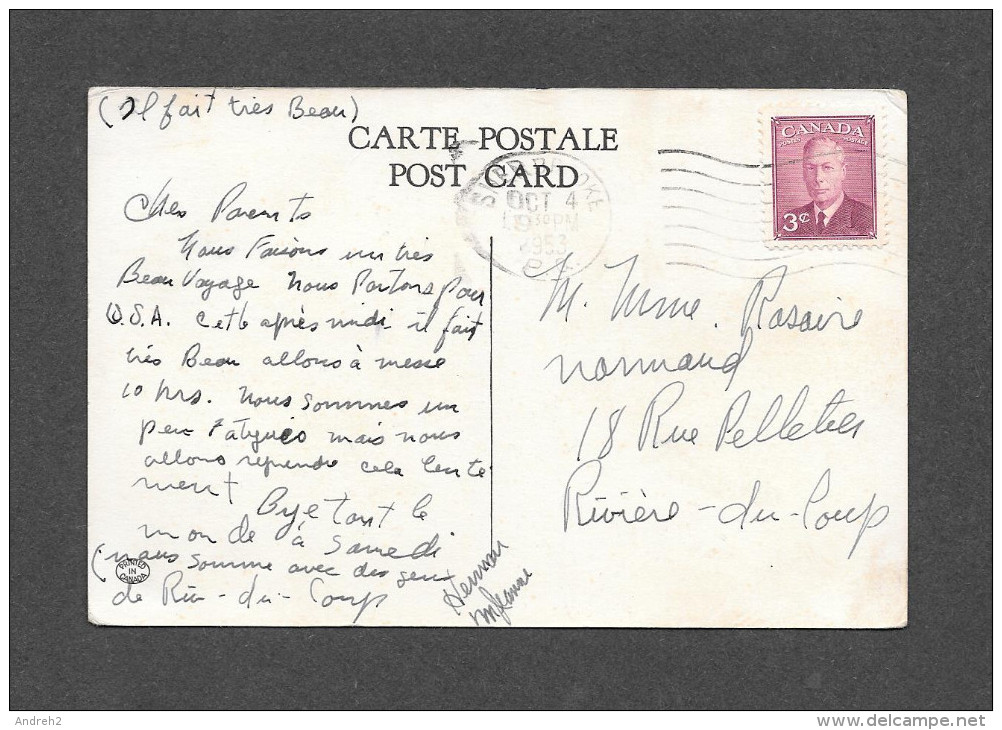 (Il fait très Beau)
CARTE POSTALE
POST CARD
CANADA
POSTES POSTAGE
3¢
SHERBROOKE
OCT 4
PM
1953
Chers Parents
Nous Faisons un très
Beau Voyage Nous Partons pour
U.S.A. cette après midi il fait
très Beau allons à messe
10 hrs. Nous sommes un
peu Fatigués mais nous
allons reprendre cela lente
ment
Bye tout le
monde à Samedi
(nous somme avec des gens
de Riv-du-Loup
PRINTED
IN
CANADA
Herman
M. Mme. Rosaire
Normand
18 Rue Pelletier
Rivière-du-Loup
Andreh2
delcampe.net